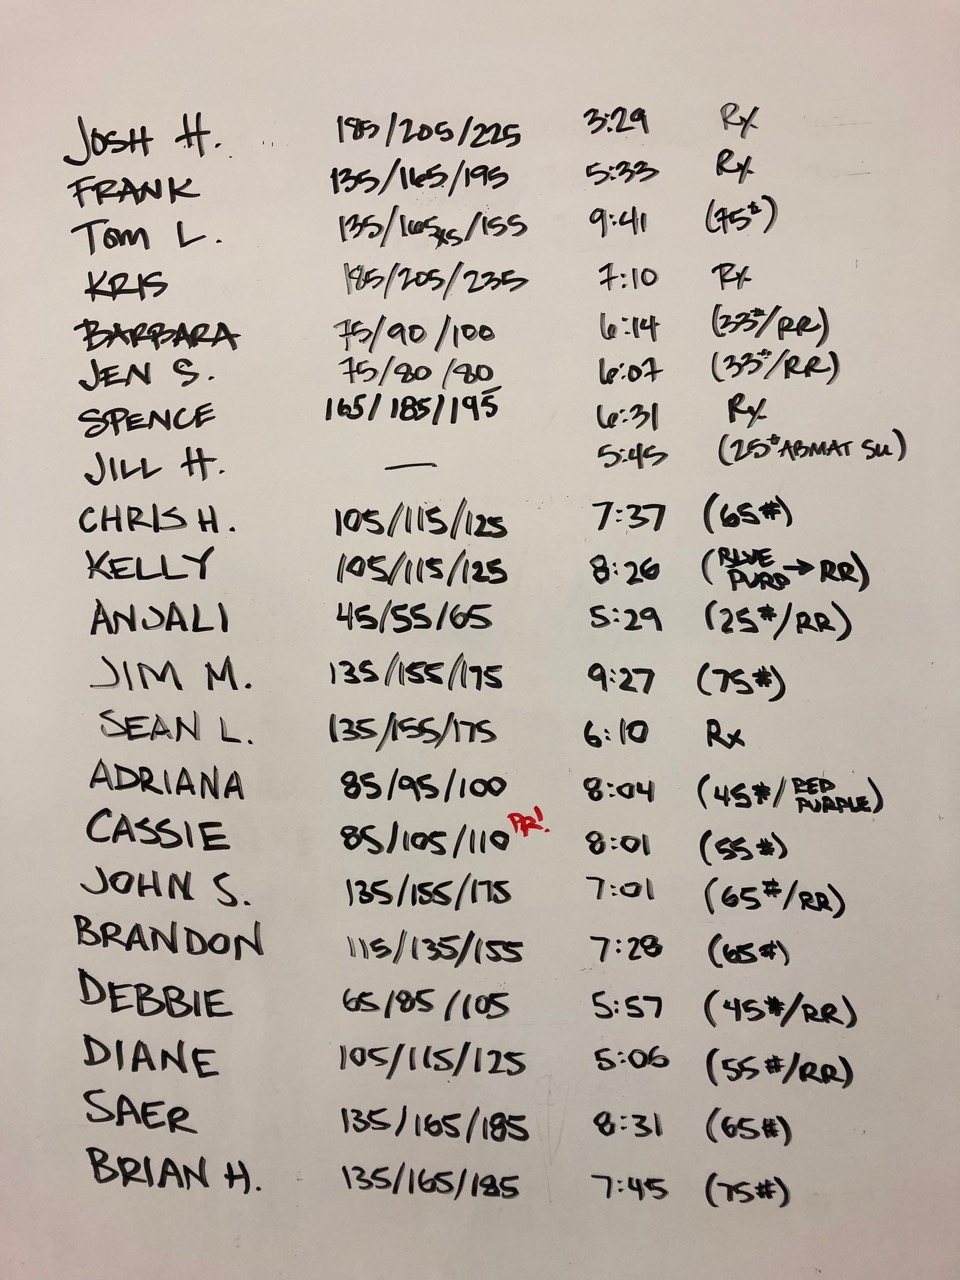 JOSH H. 185/205/225 3:29 Rx
FRANK 135/165/195 5:33 Rx
TOM L. 135/165/155 9:41 (75#)
KRIS 185/205/235 7:10 Rx
BARBARA 75/90/100 6:14 (33#/RR)
JEN S. 75/80/80 6:07 (33#/RR)
SPENCE 165/185/195 6:31 Rx
JILL H. — 5:45 (25# ABMAT SU)
CHRIS H. 105/115/125 7:37 (65#)
KELLY 105/115/125 8:26 (BLUE PURP → RR)
ANJALI 45/55/65 5:29 (25#/RR)
JIM M. 135/155/175 9:27 (75#)
SEAN L. 135/155/175 6:10 Rx
ADRIANA 85/95/100 8:04 (45#/RED PURPLE)
CASSIE 85/105/110 PR! 8:01 (55#)
JOHN S. 135/155/175 7:01 (65#/RR)
BRANDON 115/135/155 7:28 (65#)
DEBBIE 65/85/105 5:57 (45#/RR)
DIANE 105/115/125 5:06 (55#/RR)
SAER 135/165/185 8:31 (65#)
BRIAN H. 135/165/185 7:45 (75#)